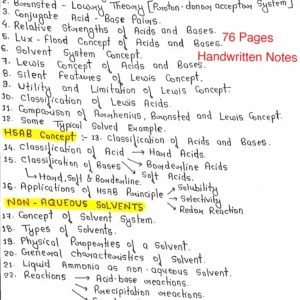 2. Bronsted - Lowry Theory [Proton-donor acceptor System]
3. Conjugate Acid - Base Pairs.
4. Relative Strengths of Acids and Bases.
5. Lux - Flood Concept of Acids and Bases.
76 Pages
6. Solvent System Concept.
Handwritten Notes
7. Lewis Concept of Acids and Bases.
8. Silent Features of Lewis Concept.
9. Utility and Limitation of Lewis Concept.
10. Classification of Lewis Acids.
11. Comparison of Arrhenius, Bronsted and Lewis Concept.
12. Some Typical Solved Example.
HSAB Concept :- 13. Classification of Acids and Bases.
14. Classification of Acid → Hard Acids.
15. Classification of Bases → Boarderline Acids
→ Hard, Soft & Borderline. → Soft Acids.
16. Applications of HSAB Principle → Solubility
→ Selectivity
→ Redox Reaction
NON - AQUEOUS SOLVENTS
17. Concept of Solvent System.
18. Types of Solvents.
19. Physical Properties of a Solvent.
20. General characteristics of Solvent.
21. Liquid Ammonia as non-aqueous Solvent.
22. Reactions → Acid-base reactions.
→ Precipitation reactions.